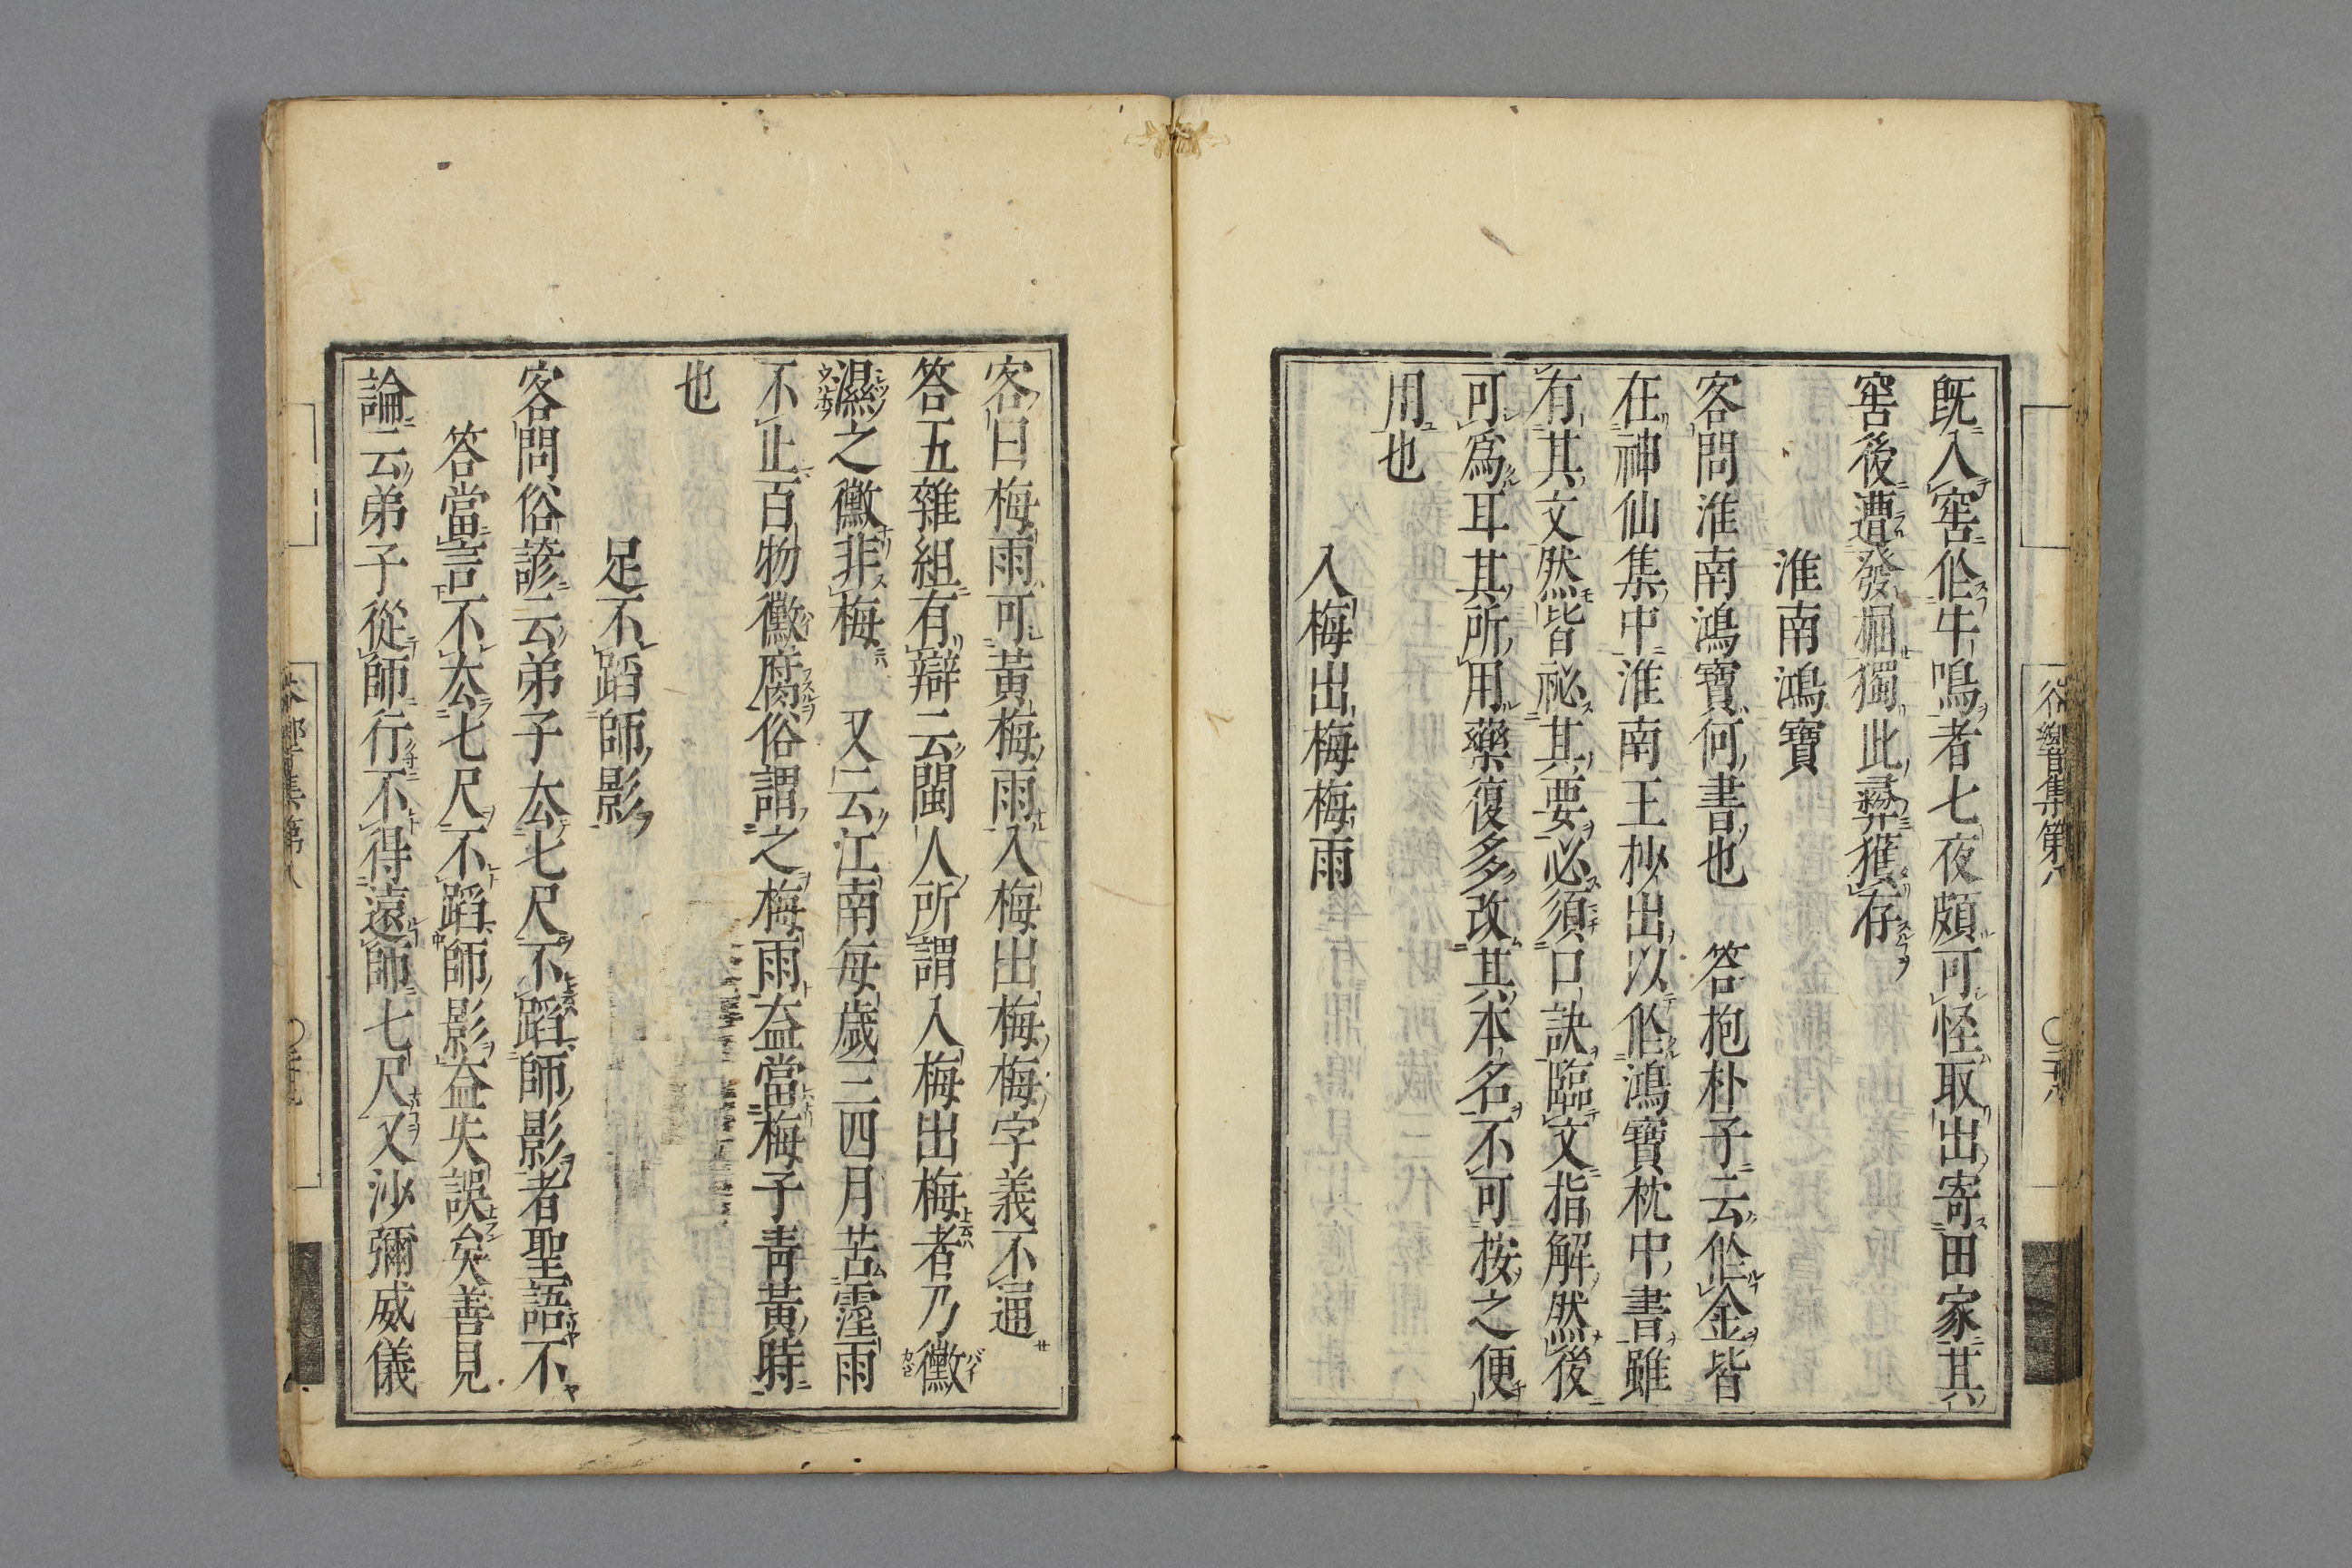 既入窖作牛鳴者七夜頗可怪取出寄田家其
窖後遭發掘獨此彞獲存
淮南鴻寶
客問淮南鴻寶何書也　答抱朴子云作金皆
在神仙集中淮南王抄出以作鴻寶枕中書雖
有其文然皆祕其要必須口訣臨文指解然後
可爲耳其所用藥復多改其本名不可按之便
用也
入梅出梅梅雨
谷響集第八
客曰梅雨可黃梅雨入梅出梅梅字義不通
答五雜組有辯云閩人所謂入梅出梅者乃黴
濕之黴非梅　又云江南每歲三四月苦霪雨
不止百物黴腐俗謂之梅雨葢當梅子青黃時
也
足不蹈師影
客問俗諺云弟子厺七尺不蹈師影者聖語不
答當言不厺七尺不蹈師影葢失誤矣善見
論云弟子從師行不得遠師七尺又沙彌威儀